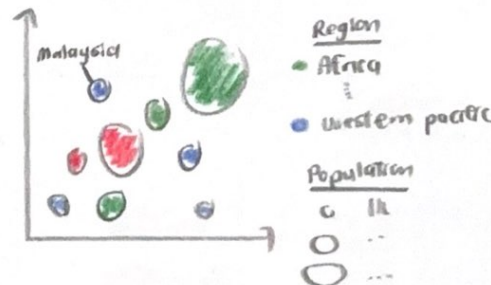 Malaysia
Region
Africa
Western pacific
Population